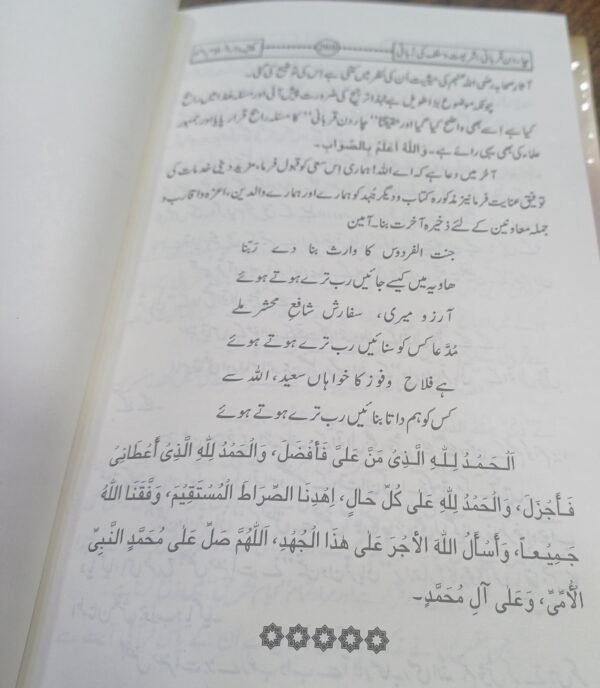 چار دن قربانی، شریعت و سلف کی زبانی
آثار صحابہ رضی اللہ عنہم کی حیثیت اُن کی نظر میں کتنی ہے اس کی توضیح کی گئی۔
چونکہ موضوع بڑا طویل ہے لہٰذا ترجیح کی ضرورت پیش آئی اور مسئلہ ھذا میں راجح
کیا ہے اسے بھی واضح کیا گیا اور حقیقتاً ”چار دن قربانی“ کا مسئلہ راجح قرار پایا اور جمہور
علماء کی بھی یہی رائے ہے۔ وَاللهُ اَعْلَمُ بِالصَّوَابِ۔
آخر میں دعا ہے کہ اے اللہ! ہماری اس سعی کو قبول فرما، مزید دینی خدمات کی
توفیق عنایت فرما نیز مذکورہ کتاب و دیگر جُہد کو ہمارے اور ہمارے والدین، اعزہ و اقارب و
جملہ معاونین کے لئے ذخیرہ آخرت بنا۔ آمین
جنت الفردوس کا وارث بنا دے رَبّنا
ھاویہ میں کیسے جائیں رب ترے ہوتے ہوئے
آرزو میری، سفارش شافعِ محشر ملے
مُدَّعا کس کو سنائیں رب ترے ہوتے ہوئے
ہے فلاح وفوز کا خواہاں سعید، اللہ سے
کس کو ہم داتا بنائیں رب ترے ہوتے ہوئے
اَلْحَمْدُ لِلّٰهِ الَّذِىْ مَنَّ عَلَىَّ فَأَفْضَلَ، وَالْحَمْدُ لِلّٰهِ الَّذِىْ أَعْطَانِىْ
فَأَجْزَلَ، وَالْحَمْدُ لِلّٰهِ عَلٰى كُلِّ حَالٍ، اِهْدِنَا الصِّرَاطَ الْمُسْتَقِيْمَ، وَفَّقَنَا اللّٰهُ
جَمِيْعاً، وَأَسْأَلُ اللّٰهَ الْأَجْرَ عَلٰى هٰذَا الْجُهْدِ، اَللّٰهُمَّ صَلِّ عَلٰى مُحَمَّدٍ النَّبِىِّ
الْأُمِّىِّ، وَعَلٰى آلِ مُحَمَّدٍ۔